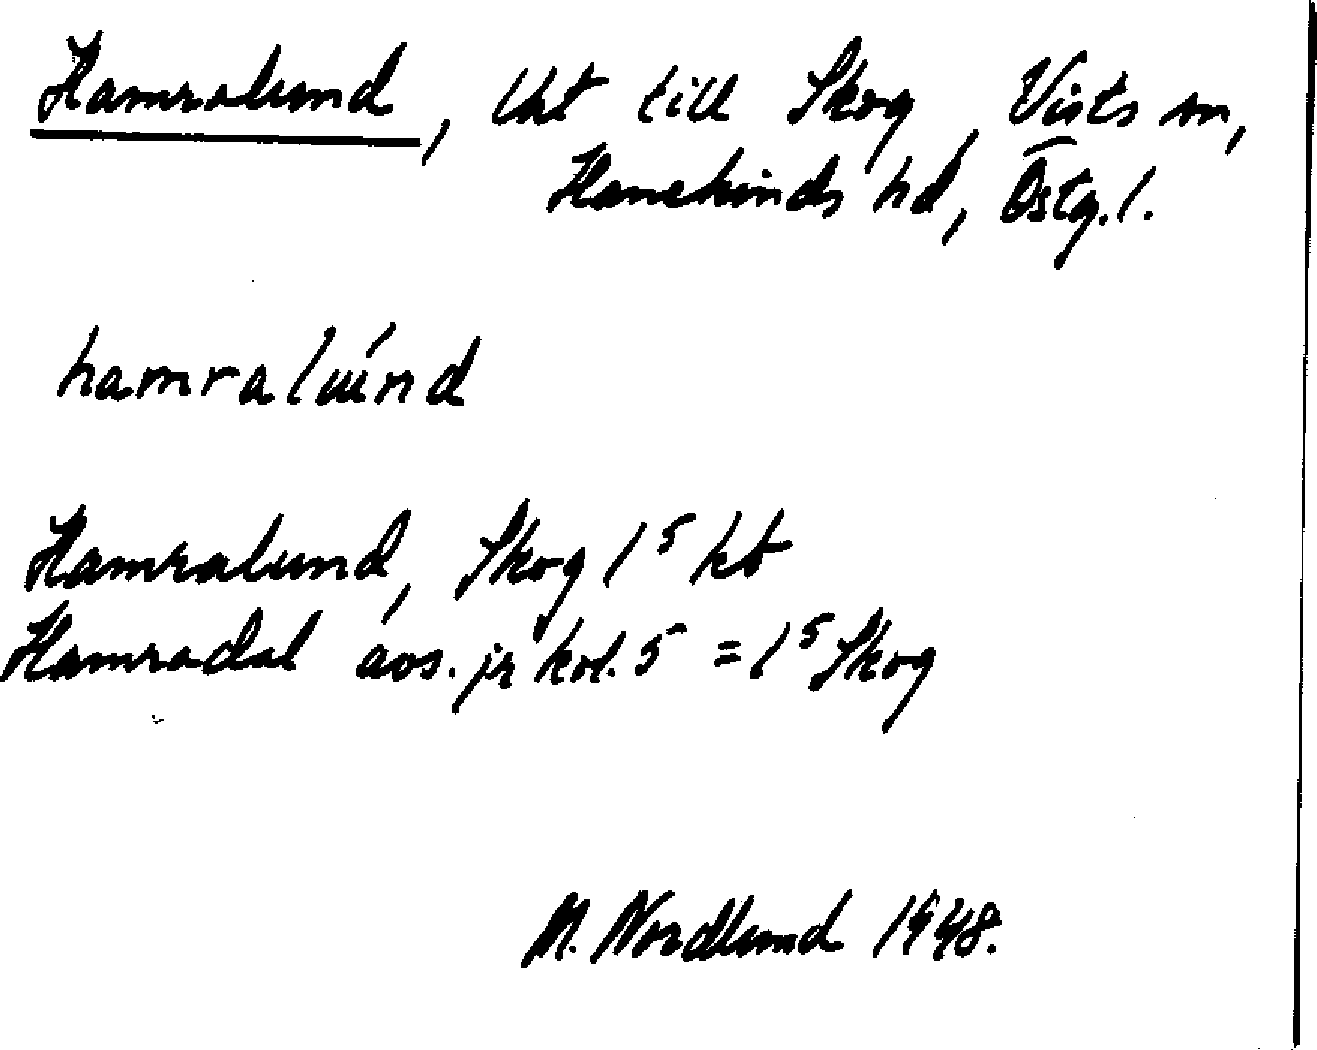 Hamralund, lht till Skog, Vists sn,
Hanekinds hd, Östg. l.
hamralúnd
Hamralund, Skog 1⁵ kb
Hamradal äos. jr kol. 5 = 1⁵ Skog
M. Nordlund 1948.